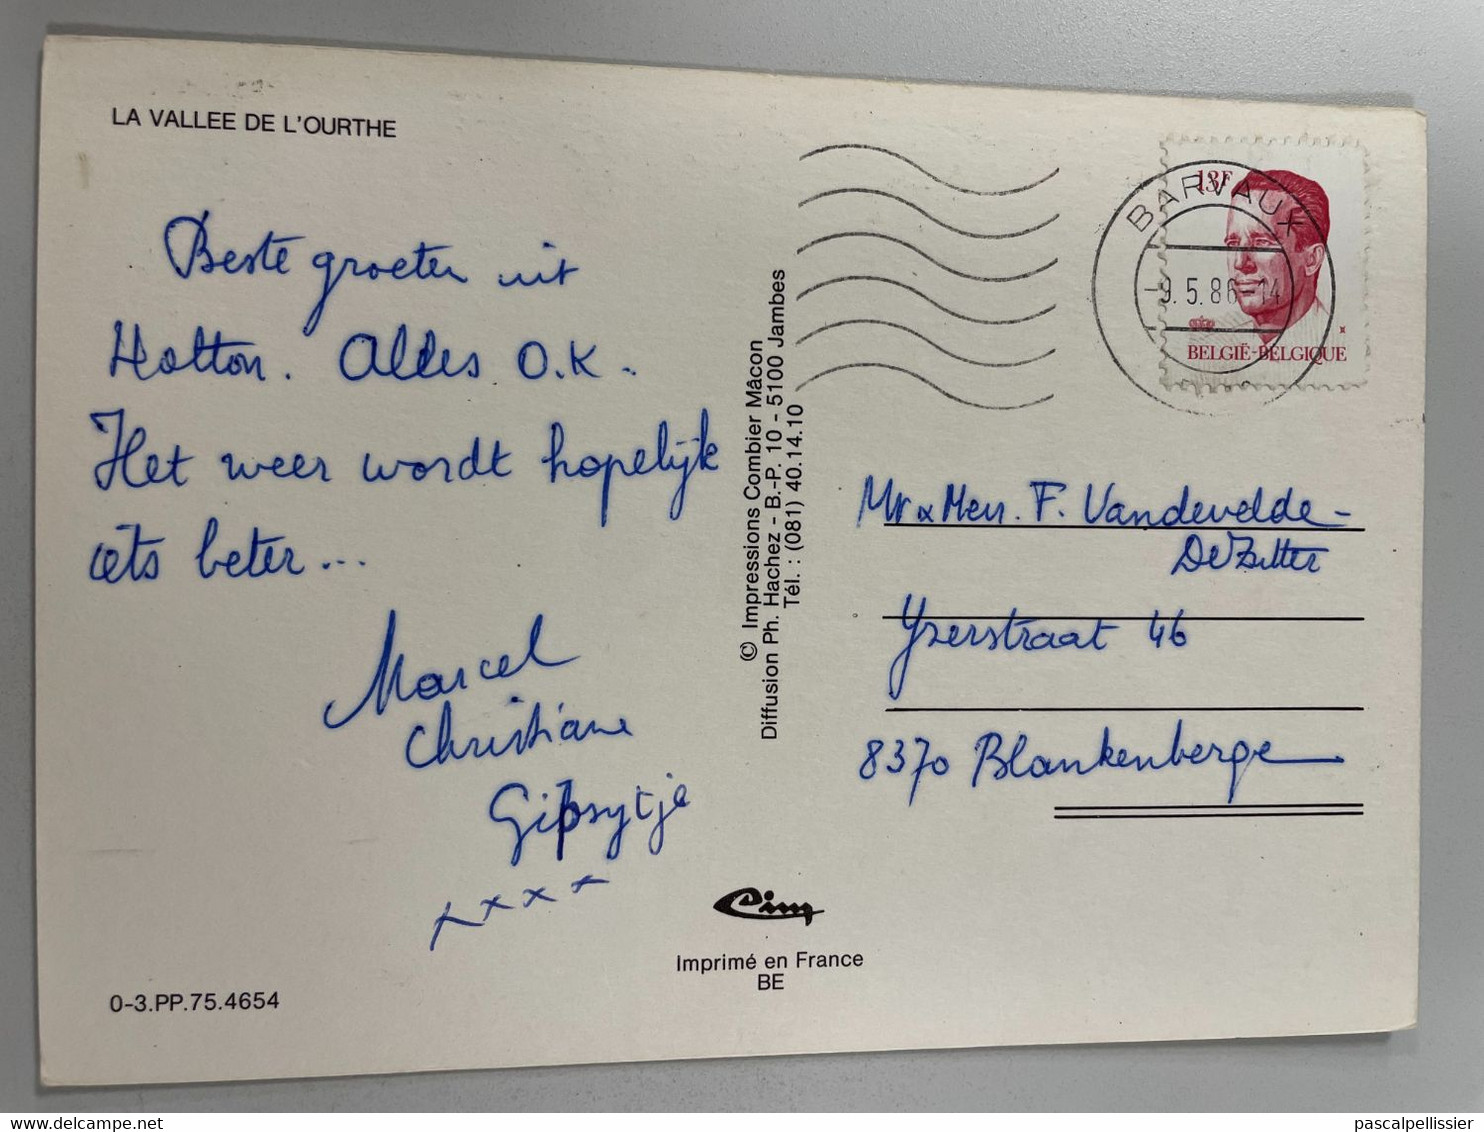 LA VALLEE DE L'OURTHE
Beste groeten uit
Hotton. Alles O.K.
Het weer wordt hopelijk
iets beter...
Marcel
Christiane
Gipsytje
x x x x
0-3.PP.75.4654
© Impressions Combier Mâcon
Diffusion Ph. Hachez - B.-P. 10 - 5100 Jambes
Tél. : (081) 40.14.10
Cim
Imprimé en France
BE
13F
BELGIË-BELGIQUE
BARVAUX
-9.5.86-14
Mr & Mevr. F. Vandevelde-
De Zitter
Yserstraat 46
8370 Blankenberge
pascalpellissier